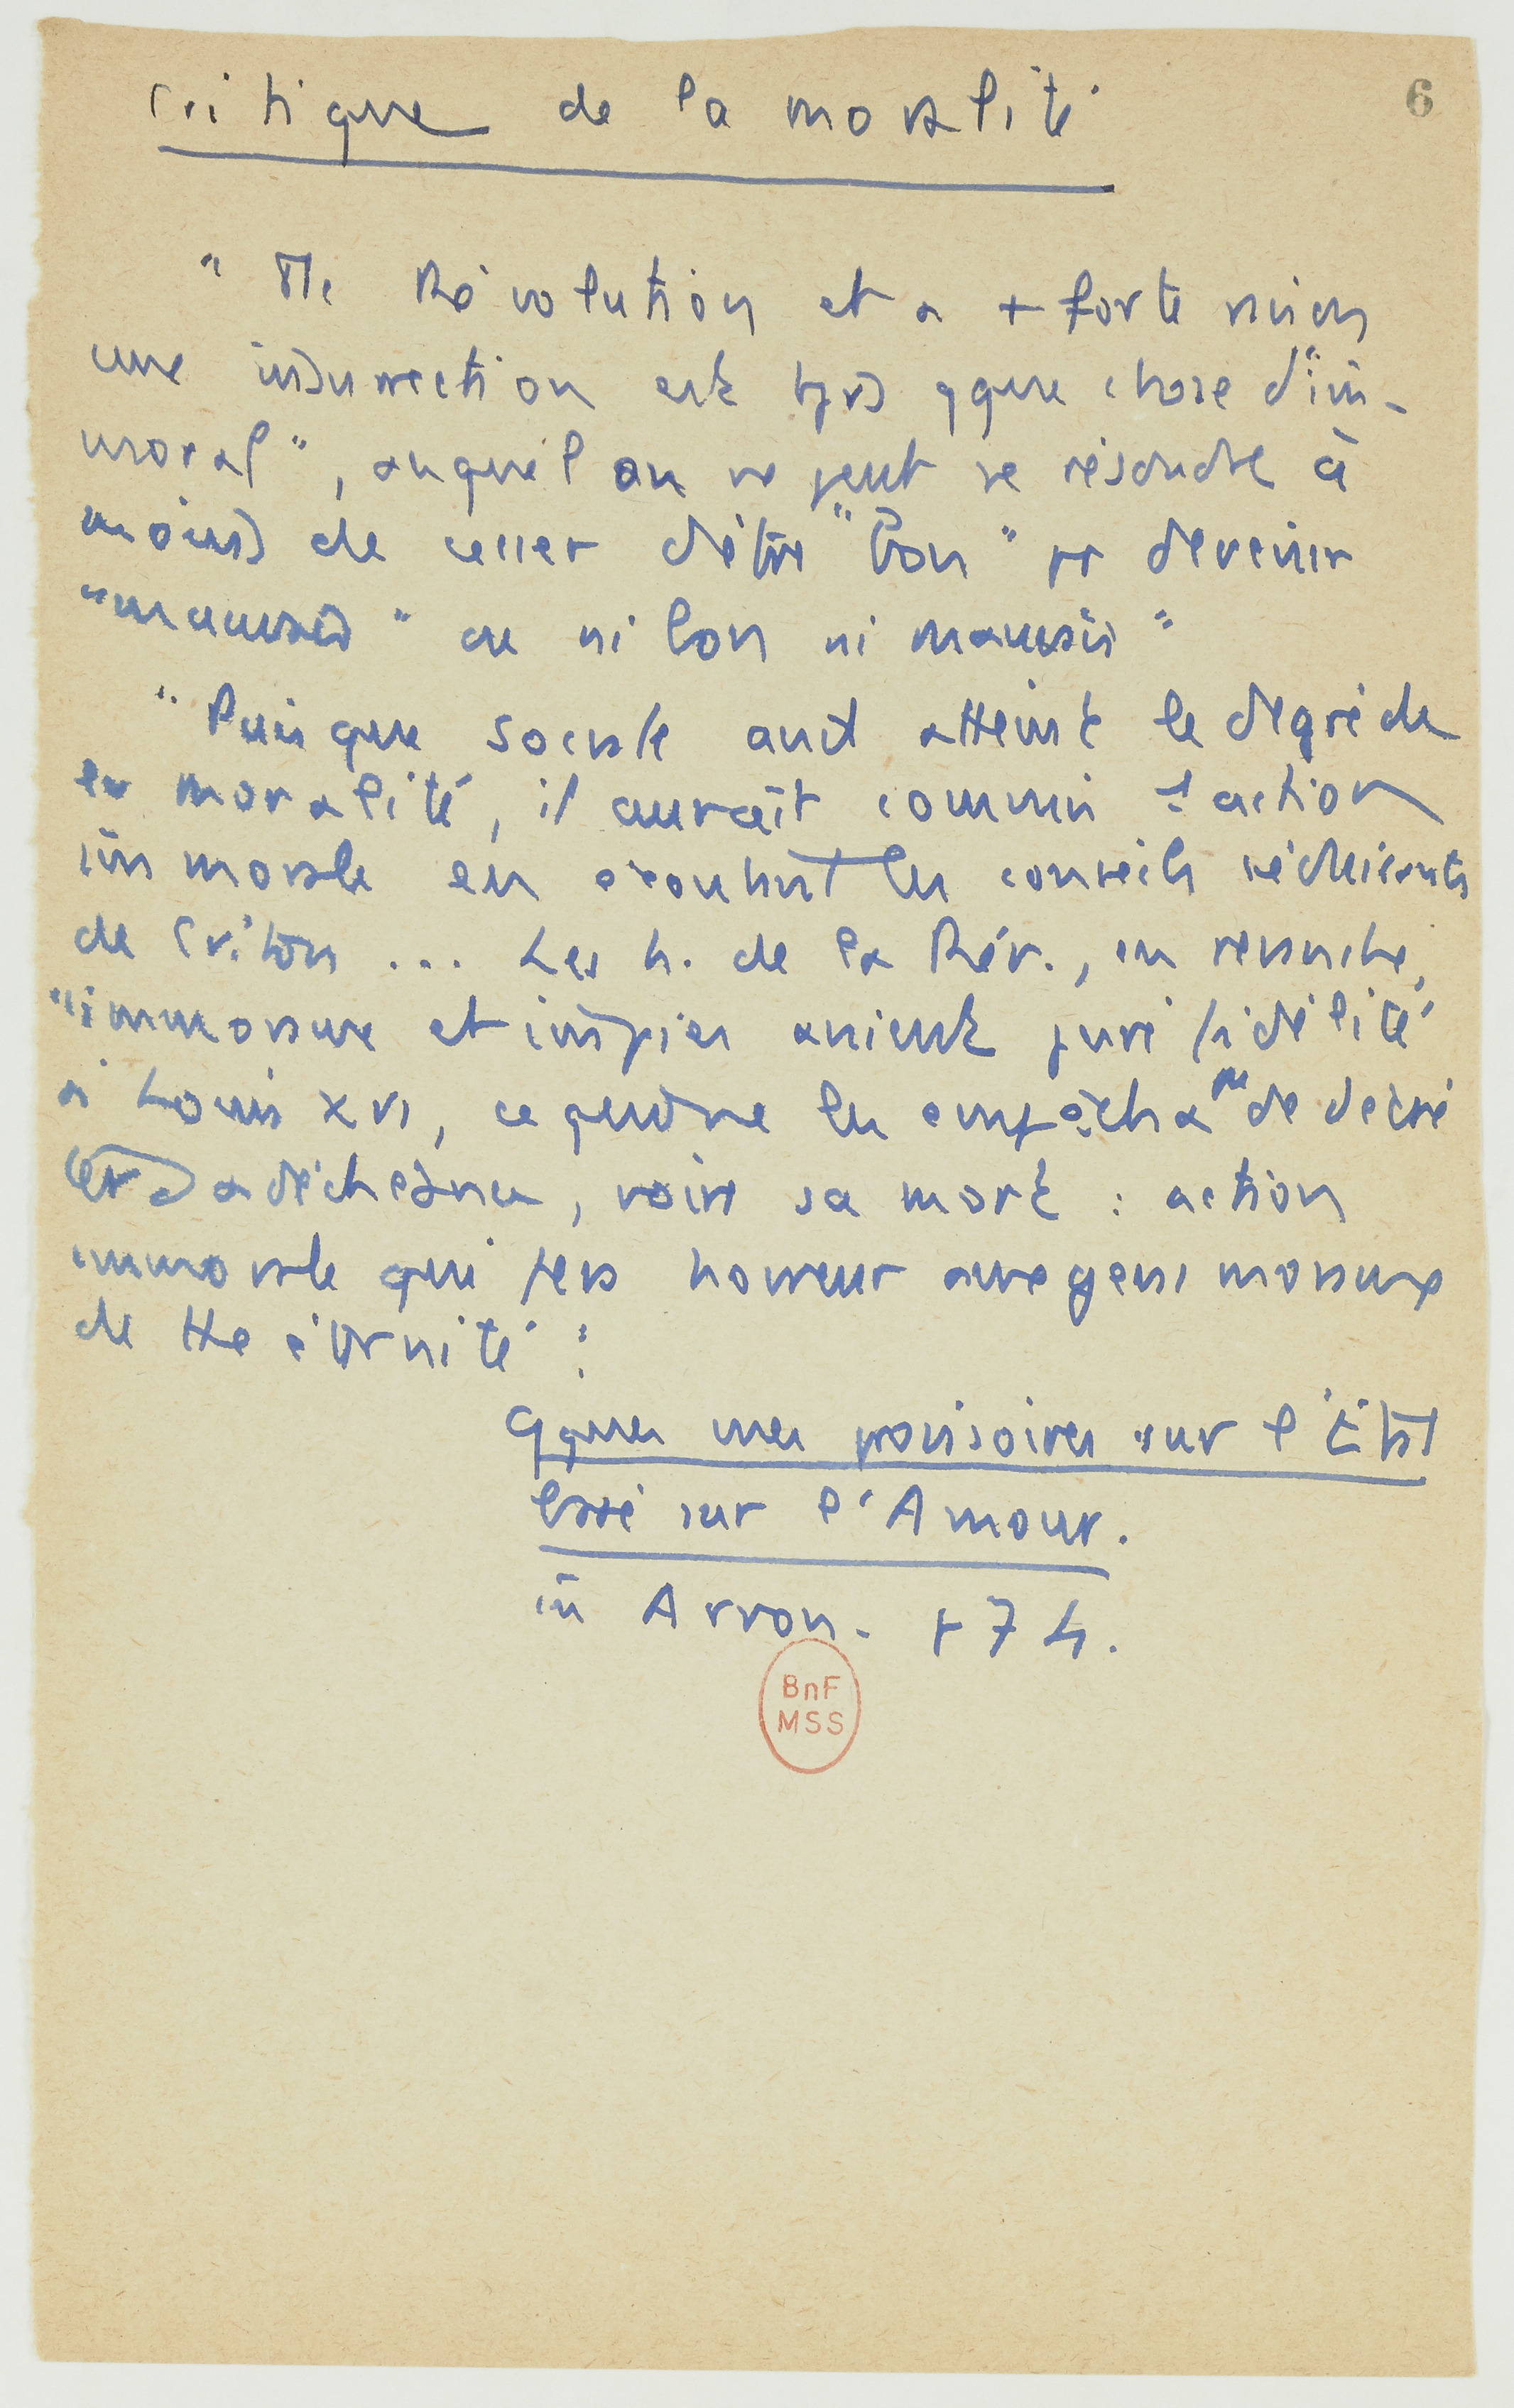 Critique de la moralité
6
" Tte Révolution et a + forte raison
une insurrection est tjrs qque chose d'im-
moral", auquel on ne peut se résoudre à
moins de cesser d'être "bon" pr devenir
"mauvais" ou ni bon ni mauvais"
" Puisque Socrate avait atteint le degré de
la moralité, il aurait commis 1e action
immorale en écoutant les conseils séduisants
de Criton ... Les h. de la Rév., en revanche,
"immoraux et impies avaient juré fidélité
à Louis XVI, ce qui ne les empêcha pas de décré
ter sa déchéance, voire sa mort : action
immorale qui fera horreur aux gens moraux
de tte éternité :
Qques vues provisoires sur l'Etat
basé sur l'Amour.
in Arvon. p 74.
BnF
MSS